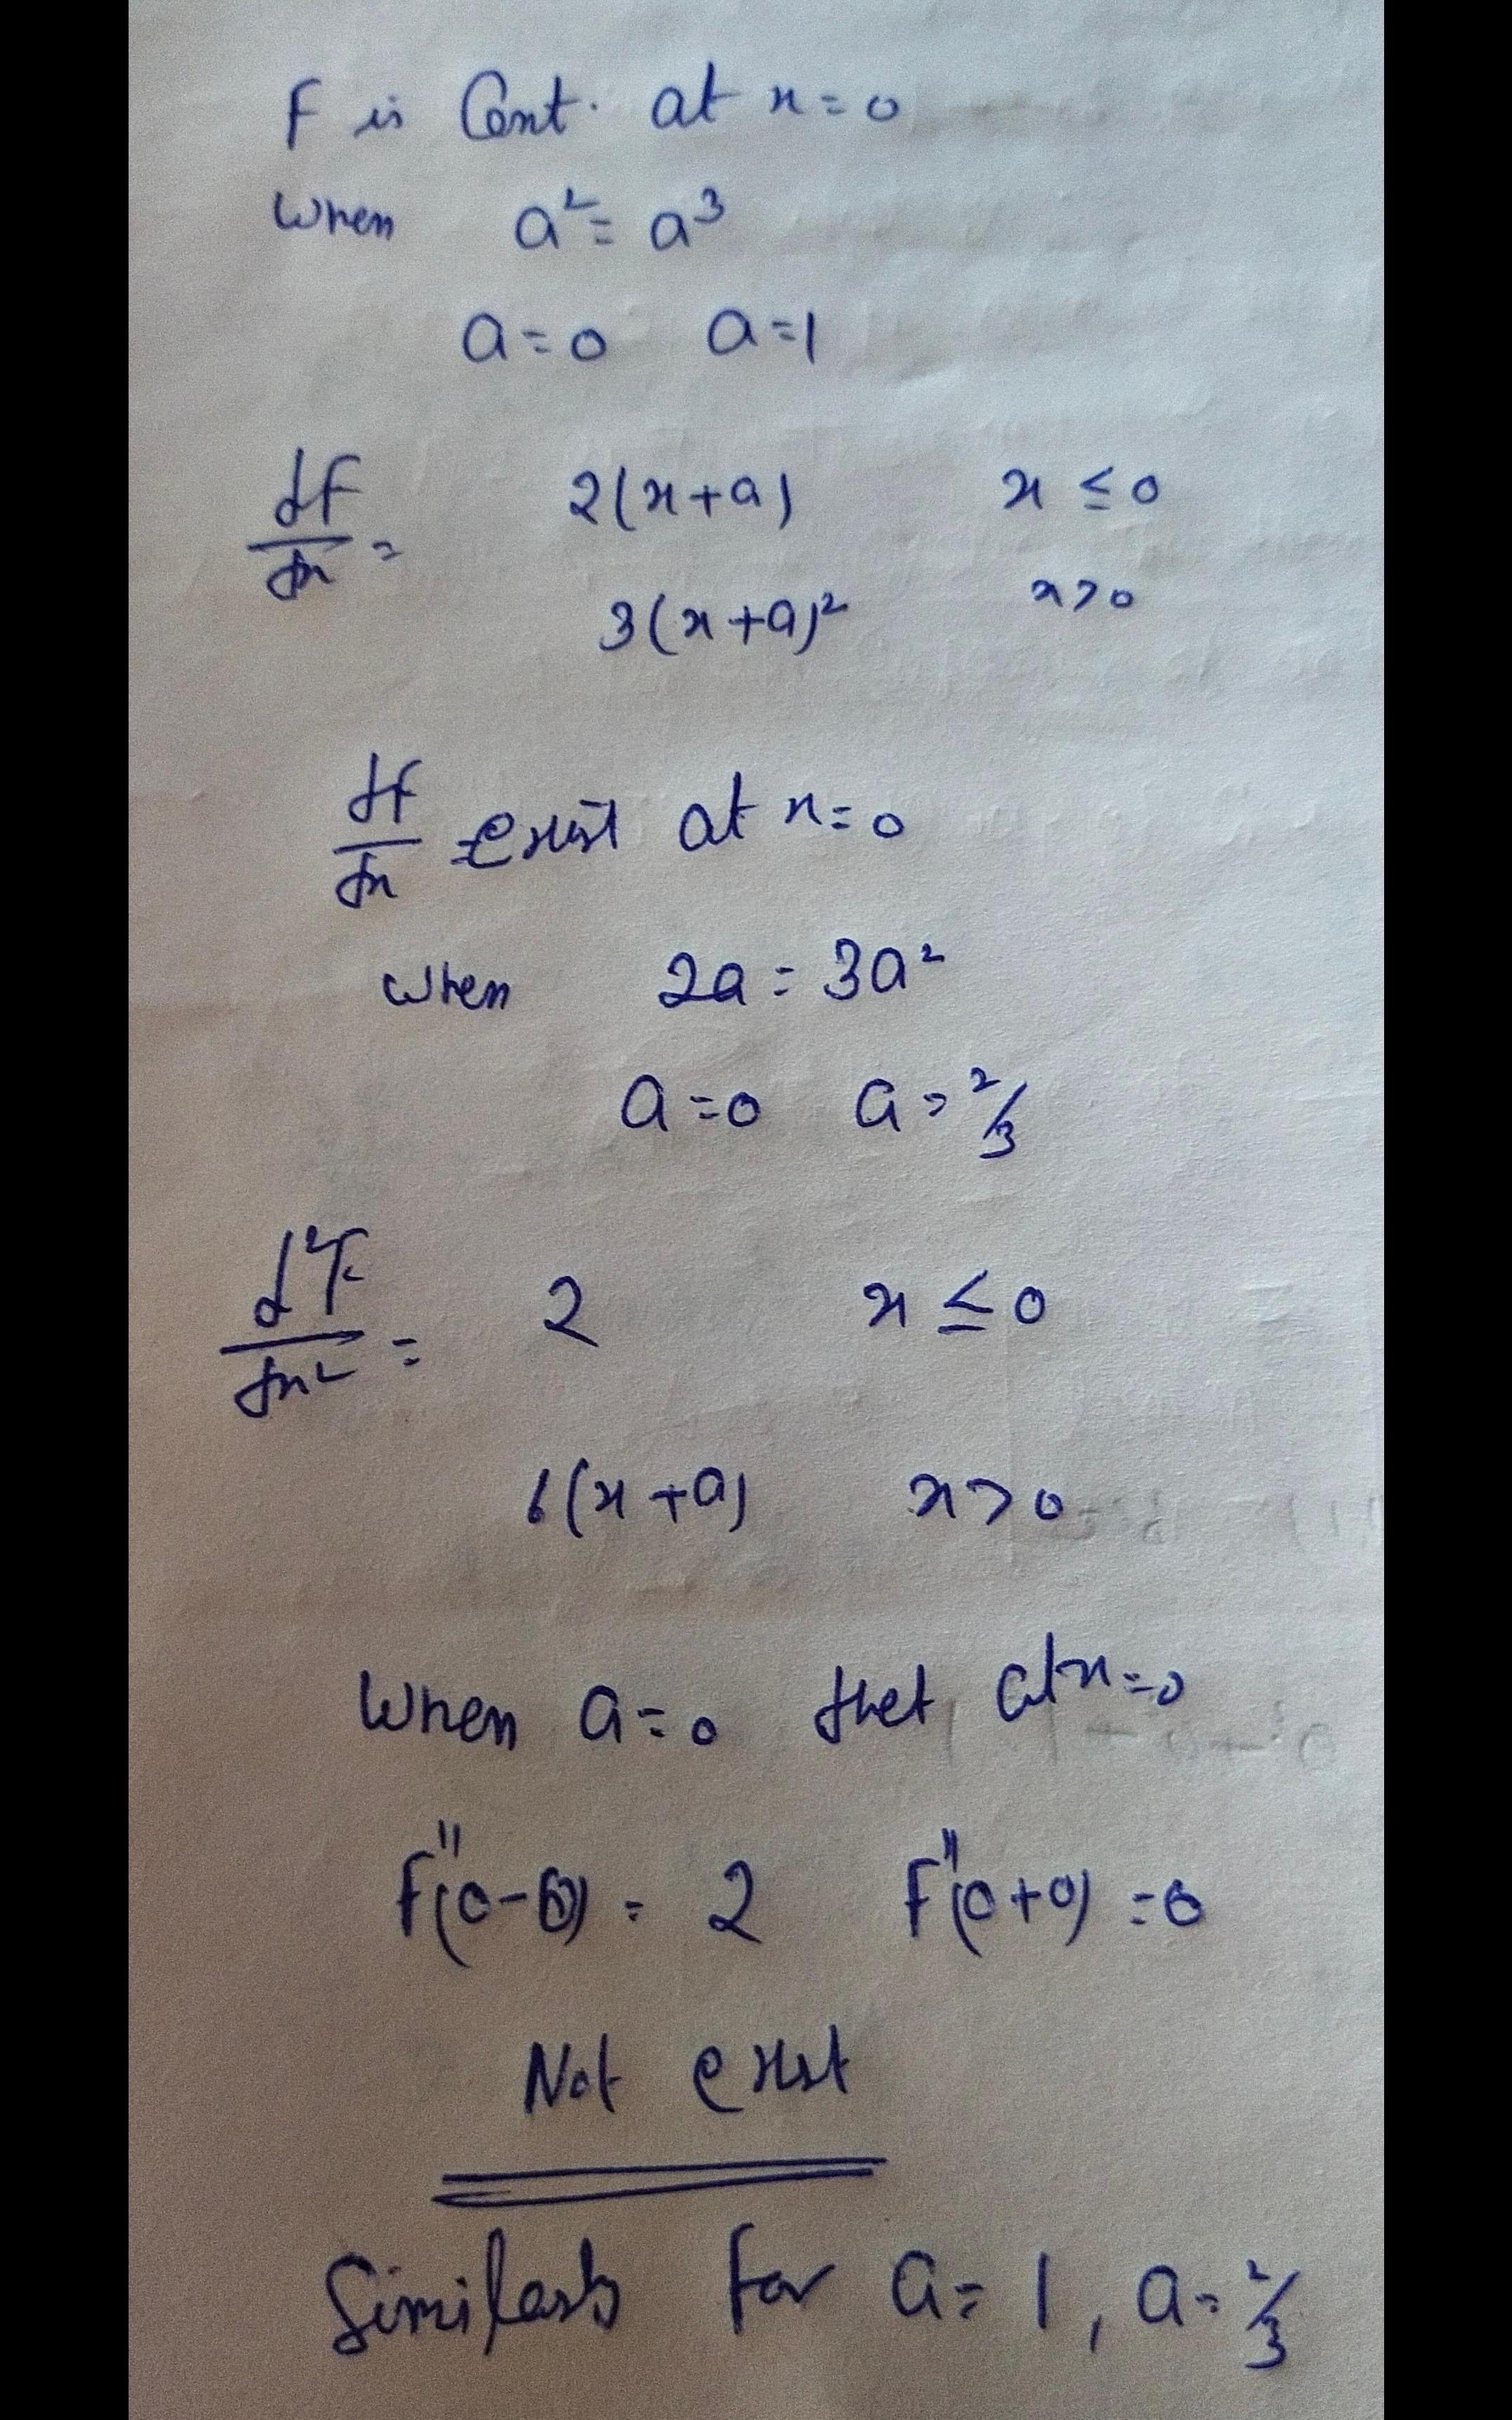 F is Cont. at x=0
When a²= a³
a=0 a=1
df/dx = 2(x+a) x ≤ 0
3(x+a)² x>0
df/dx exist at x=0
when 2a = 3a²
a=0 a=2/3
d²F/dx² = 2 x ≤ 0
6(x+a) x>0
When a=0 that at x=0
F''(0-0) = 2 F''(0+0) =0
Not exist
Similarly for a=1, a=2/3